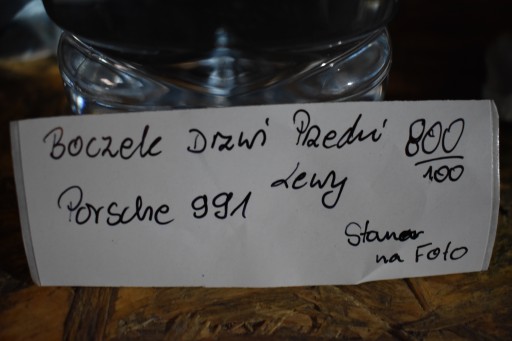 Boczek Drzwi Przedni 800
100
Lewy
Porsche 991
Stan
na Foto